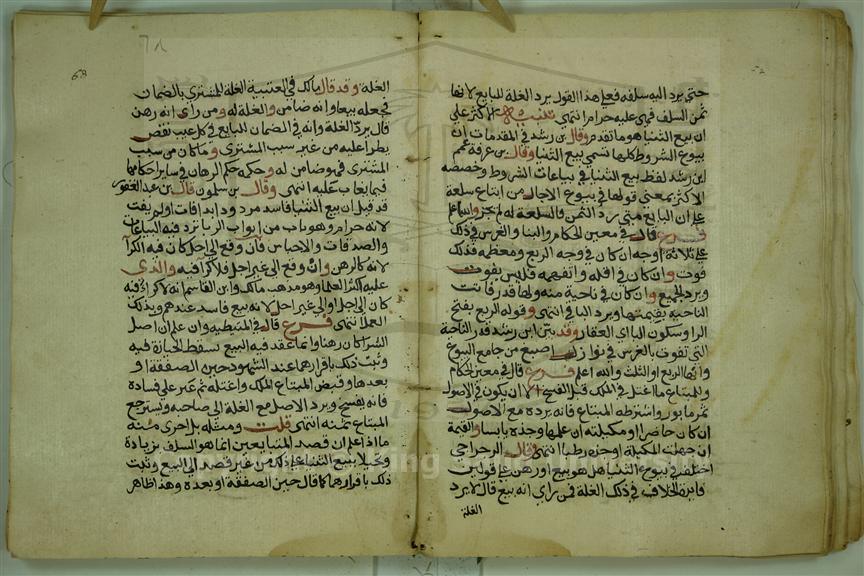 حتى يرد اليه سلفه فعلى هذا القول يرد الغلة للبايع لانها
ثمن السلف فهى عليه حرام انتهى تنبيه الاكثر على
ان بيع الثنيا هو ما تقدم وقال بن رشد في المقدمات ان
بيوع الشروط كلها تسمى بيع الثنيا وقال بن عرفة عمم
ابن رشد لفظ بيع الثنيا في بياعات الشروط وخصصه
الاكثر بمعنى قولها في بيوع الاجال من ابتاع سلعة
على ان البايع متى رد الثمن فالسلعة له لم يجز
فرع قال في معين الحكام والبنا والغرس في ذلك
على ثلاثة اوجه ان كان في وجه الربع ومعظمه فذلك
فوت وان كان في اقله واتفهه فليس بفوت
ويرد الجميع وان كان في ناحية منه ولها قدر فاتت
الناحية بقيمتها ويرد الباقى انتهى وقوله الربع بفتح
الرا وسكون البا اى العقار وقد بين ابن رشد قدر الناحية
التى تفوت بالغرس في نوازل اصبغ من جامع البيوع
وانها الربع او الثلث والله اعلم فرع قال في معين الحكام
وللمبتاع ما اغتل في الملك قبل الفسخ الا ان يكون في الاصول
ثمر مابور واشترطه المبتاع فانه يرده مع الاصول
ان كان حاضرا او مكيلته ان علمها وجذه يابسا والقيمة
ان جهلت المكيلة او جزه رطبا انتهى وقال الرجراجى
اختلف في بيوع الثنيا هل هو بيع او رهن على قولين
وفايدة الخلاف في ذلك الغلة فمن راى انه بيع قال لا يرد
الغلة
68
الغلة وقد قال مالك في العتبية الغلة للمشترى بالضمان
فجعله بيعا وانه ضامن والغلة له ومن راى انه رهن
قال يرد الغلة وانه في الضمان للبايع في كل عيب نقص
يطرا عليه من غير سبب المشترى وما كان من سبب
المشترى فهو ضامن له وحكمه حكم الرهان في ساير احكامها
فيما يغاب عليه انتهى وقال بن سلمون قال بن عبد الغفور
قد قيل ان بيع الثنيا فاسد مردود ابدا فات او لم يفت
لانه حرام وهو باب من ابواب الربا ترد فيه البياعات
والصدقات والاحباس فان وقع الى اجل كان فيه الكرا
لانه كالرهن وان وقع الى غير اجل فلا كرا فيه والذى
عليه اكثر العلما وهو مذهب مالك وابن القاسم انه لا كرا فيه
كان الى اجل او الى غير اجل لانه بيع فاسد عندهم وبذلك
العمل انتهى فرع قال في المتيطية وان علم ان اصل
الشرا كان رهنا وانما عقد فيه البيع لتسقط الحيازة فيه
وثبت ذلك باقرارهما عند الشهود حين الصفقة او
بعدها وقبض المبتاع الملك واغتله ثم عثر على فسادة
فانه يفسخ ويرد الاصل مع الغلة الى صاحبه ويسترجع
المبتاع ثمنه انتهى قلت ومثله بل احرى منه
ما اذا علم ان قصد المتبايعين انما هو السلف بزيادة
وتحيلا ببيع الثنيا على ذلك من غير قصد الى البيع وثبت
ذلك باقرارهما كما قال حين الصفقة او بعده وهذا ظاهر